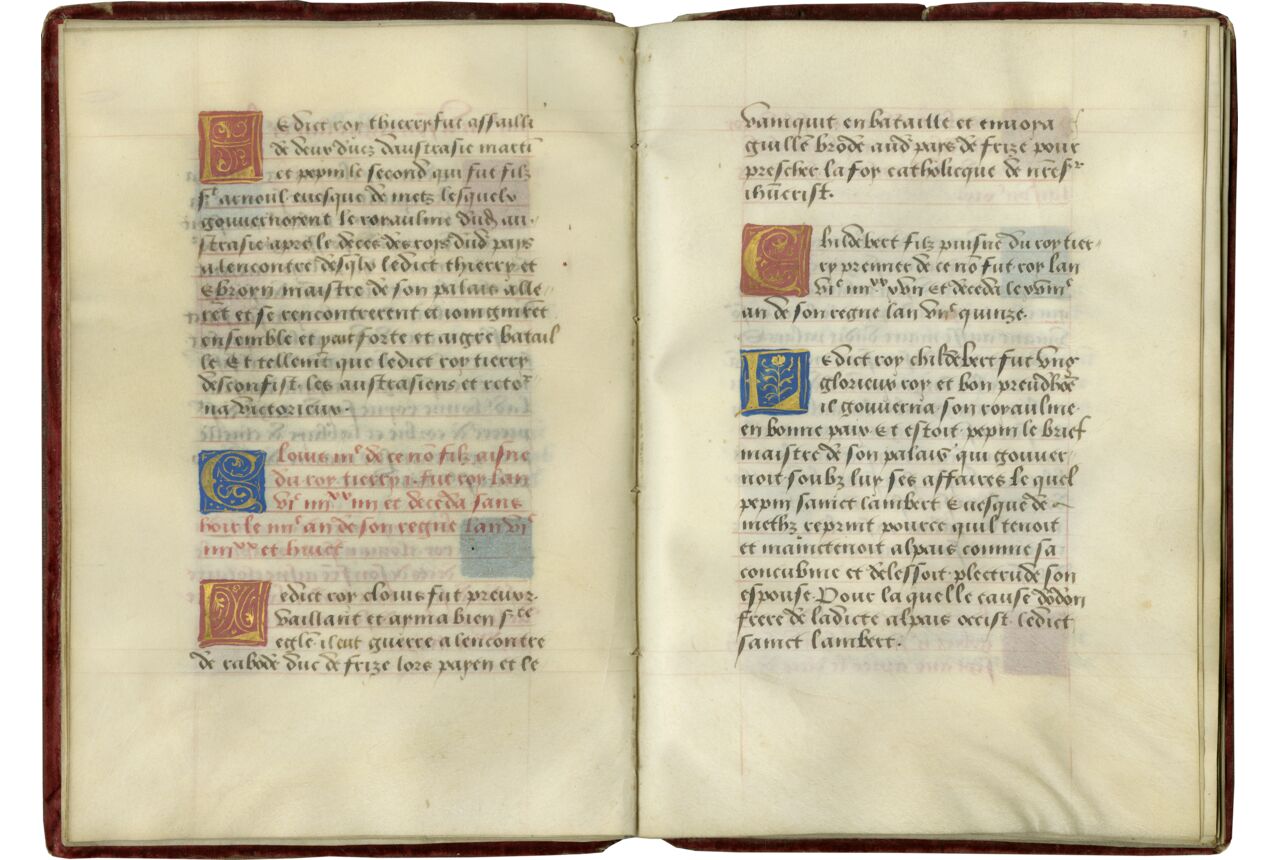 Ledict roy thierry fut assailli
de deux ducz daustrasie marti
et pepin le second qui fut filz
st arnoul euesque de metz lesquelx
gouuernoient le royaulme dud au
strasie apres le deces des roys dud pays
alencontre desqlx ledict thierry et
Ebroyn maistre de son palais alle
rēt et se rencontrerent et ioingnirēt
ensemble et y ait forte et aigre batail
le Et tellemēt que ledict roy tierry
desconfist les austrasiens et retor
na victorieux.
Clouis iiie de ce nō filz aisne
du roy tierry i. fut roy lan
vic iiiixx iiii et deceda sans
hoir le iiiie an de son regne lan vic
iiiixx et huict
Ledict roy clouis fut preux
vaillant et ayma bien sce
egle il eut guerre alencontre
de rabode duc de frize lors payen et le
vainquit en bataille et enuoya
guille brode aud pays de frize pour
prescher la foy catholicque de nre sr
ihuucrist.
Childebert filz puisne du roy tier
ry premier de ce nō fut roy lan
vic iiiixx xvii et deceda le xviiie
an de son regne lan viic quinze.
Ledict roy childebert fut vng
glorieux roy et bon preudhōe
il gouuerna son royaulme
en bonne paix Et estoit pepin le brief
maistre de son palais qui gouuer
noit soubz luy ses affaires le quel
pepin sainct lambert Euesque de
methz reprint pource quil tenoit
et mainctenoit alpais comme sa
concubine et delessoit plectrude son
espouse. Pour la quelle cause dodon
frere de ladicte alpais occist ledict
sainct lambert.